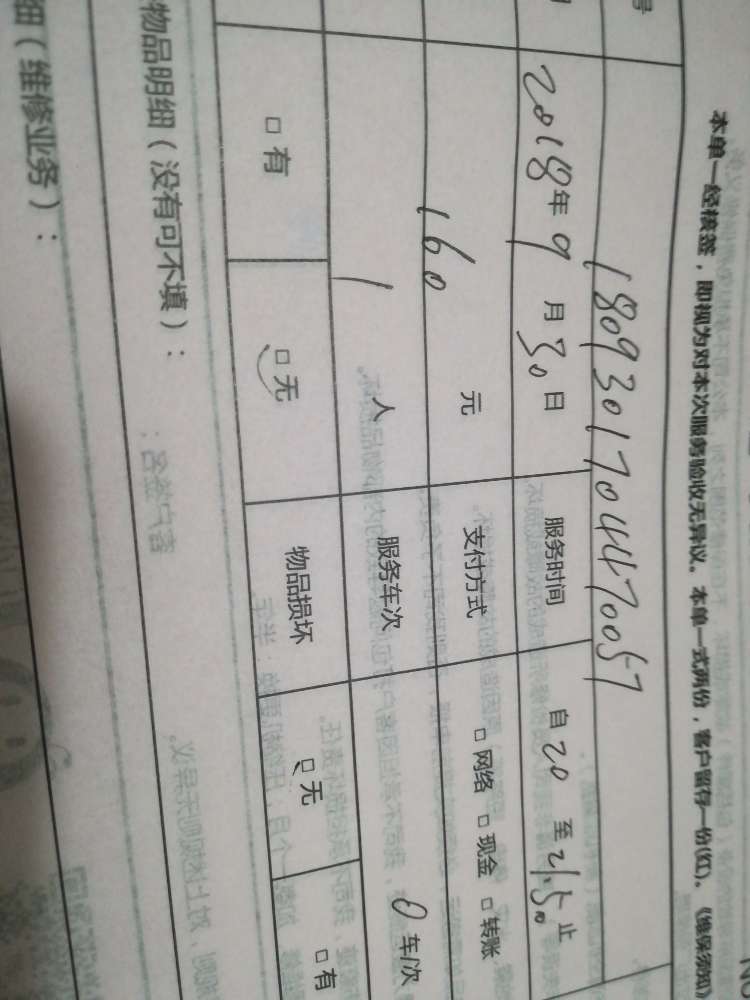 本单一经核签，即视为对本次服务验收无异议。本单一式两份，客户留存一份(红)。《维保须知》
号 1809301704470057
2018年9月30日 服务时间 自20至21.50止
160 元 支付方式 □网络 □现金 □转账
1 人 服务车次 0 车/次
□有 □无 物品损坏 □无 □有
物品明细（没有可不填）：
细（维修业务）：